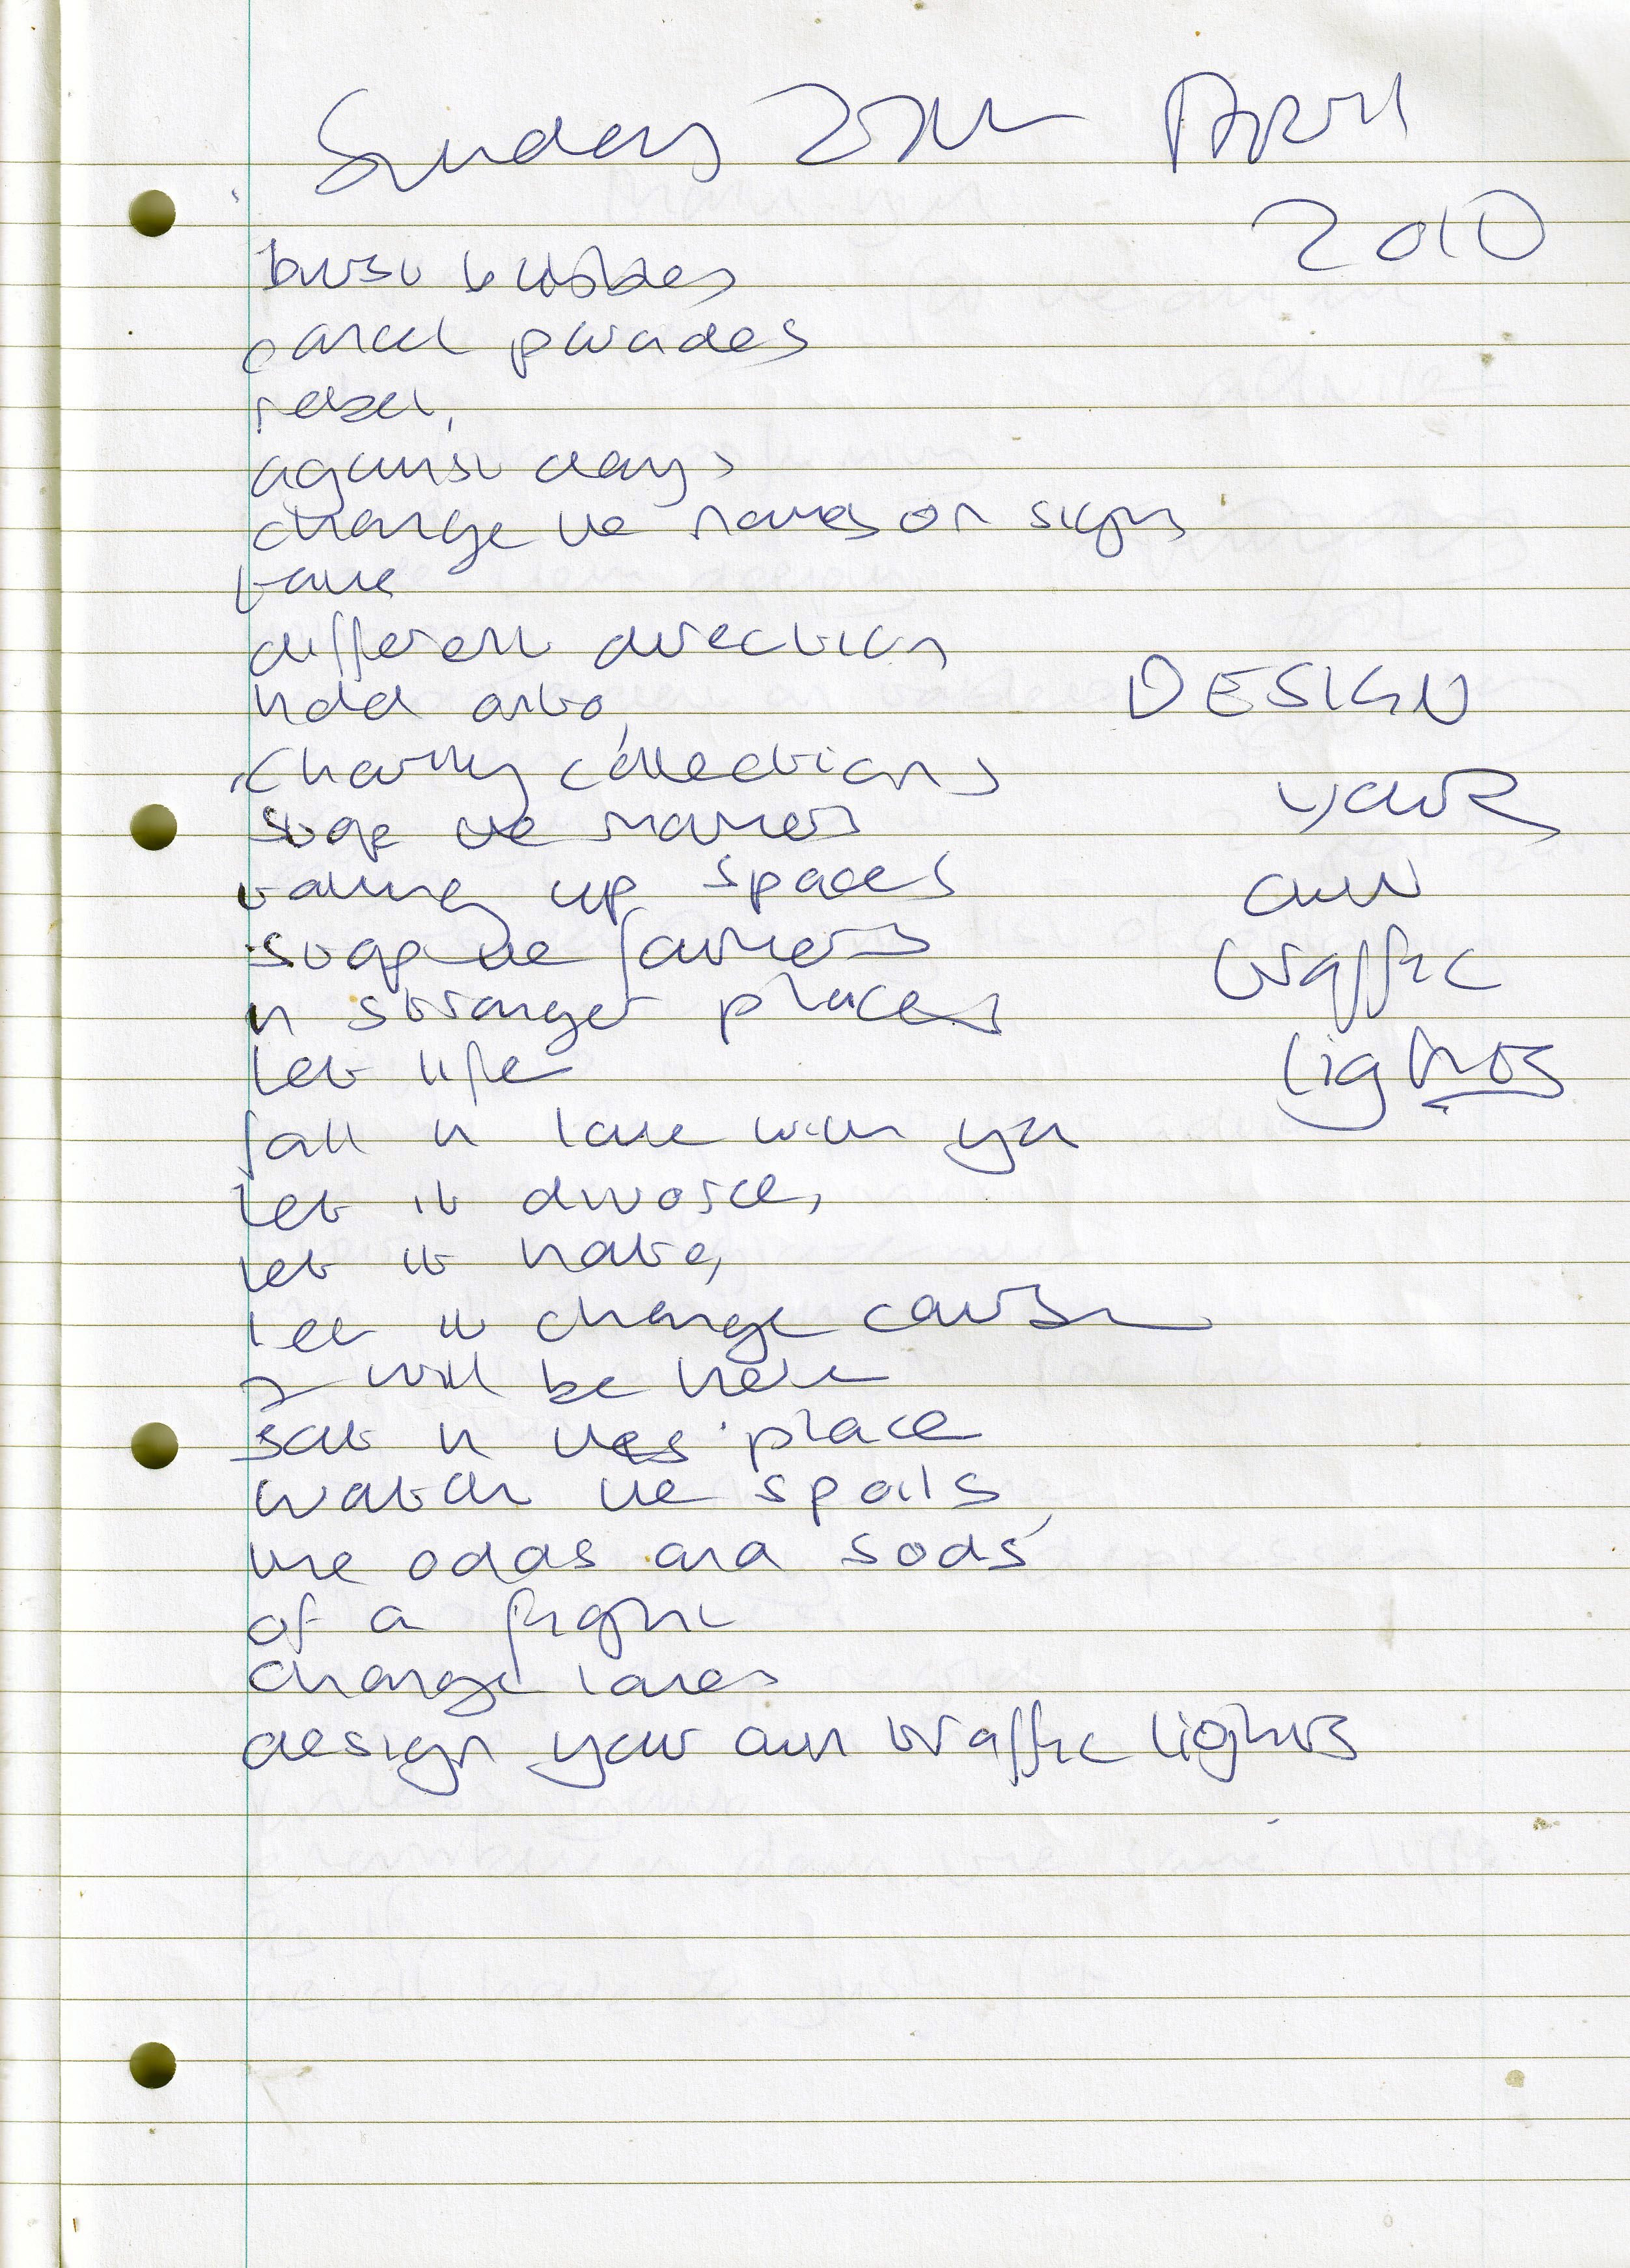 Sunday 25th April
2010
burst bubbles
cancel parades
rebel,
against days
change the names on signs
take
different direction
hold onto,
charity collections
stop the
taking up spaces
stop the farmers
in stranger places
let life
fall in love with you
let it divorce,
let it hate,
let it change course
I will be here
sat in this place
watch the spoils,
the odds and sods
of a fight
change lanes
design your own traffic lights
DESIGN
your
own
traffic
lights